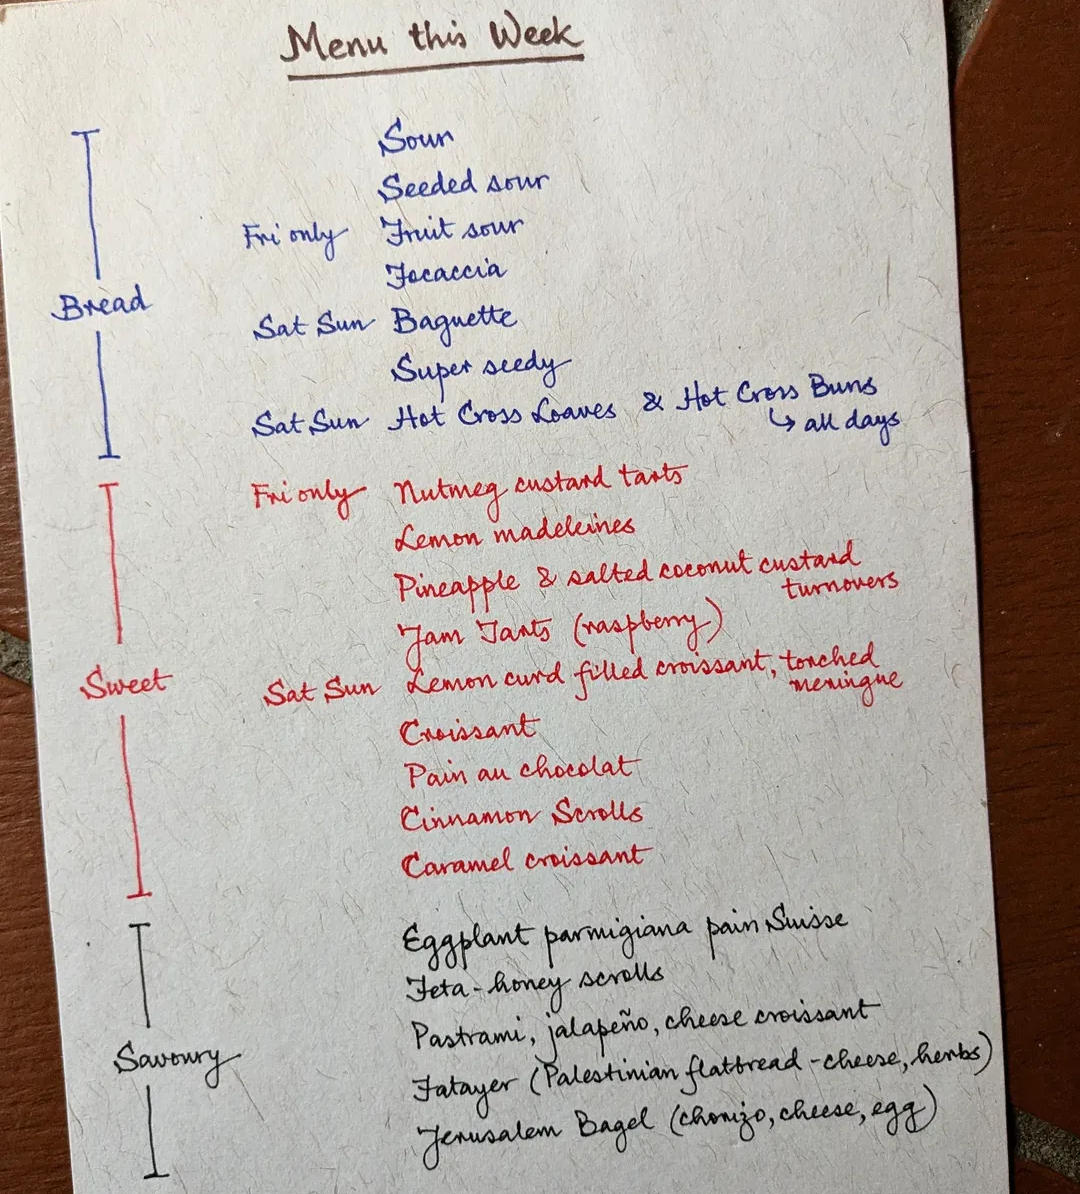 Menu this Week
Sour
Seeded sour
Fri only Fruit sour
Focaccia
Bread
Sat Sun Baguette
Super seedy
Sat Sun Hot Cross Loaves & Hot Cross Buns
↳ all days
Fri only Nutmeg custard tarts
Lemon madeleines
Pineapple & salted coconut custard
turnovers
Jam Tarts (raspberry)
Sweet
Sat Sun Lemon curd filled croissant, torched
meringue
Croissant
Pain au chocolat
Cinnamon Scrolls
Caramel croissant
Eggplant parmigiana pain Suisse
Feta-honey scrolls
Pastrami, jalapeño, cheese croissant
Savoury
Fatayer (Palestinian flatbread - cheese, herbs)
Jerusalem Bagel (chorizo, cheese, egg)